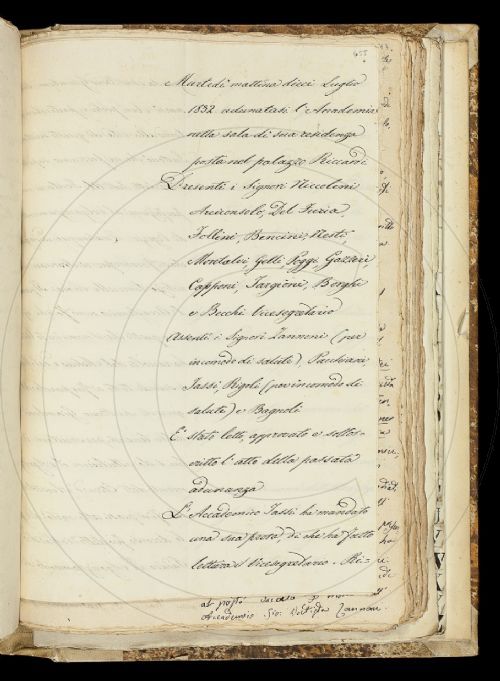 Martedì mattina dieci Luglio
1832 adunatasi l'Accademia
nella sala di sua residenza
posta nel palazzo Riccardi
Presenti i Signori Niccolini
Arciconsolo, Del Furia,
Follini, Bencini, Nesti,
Montalvi, Gelli, Poggi, Gazzeri,
Capponi, Targioni, Borghi
e Becchi Vicesegretario
Assenti i Signori Zannoni (per
incomodo di salute), Pauciani
Tassi, Rigoli (per incomodo di
salute) e Bagnoli
E' stato letto, approvato e sottos-
critto l'atto della passata
adunanza
L'Accademico Tassi ha mandato
una sua prosa, di che ha fatto
lettura il Vicesegretario. Ri-
al posto
Accademico Gio. Batista Zannoni